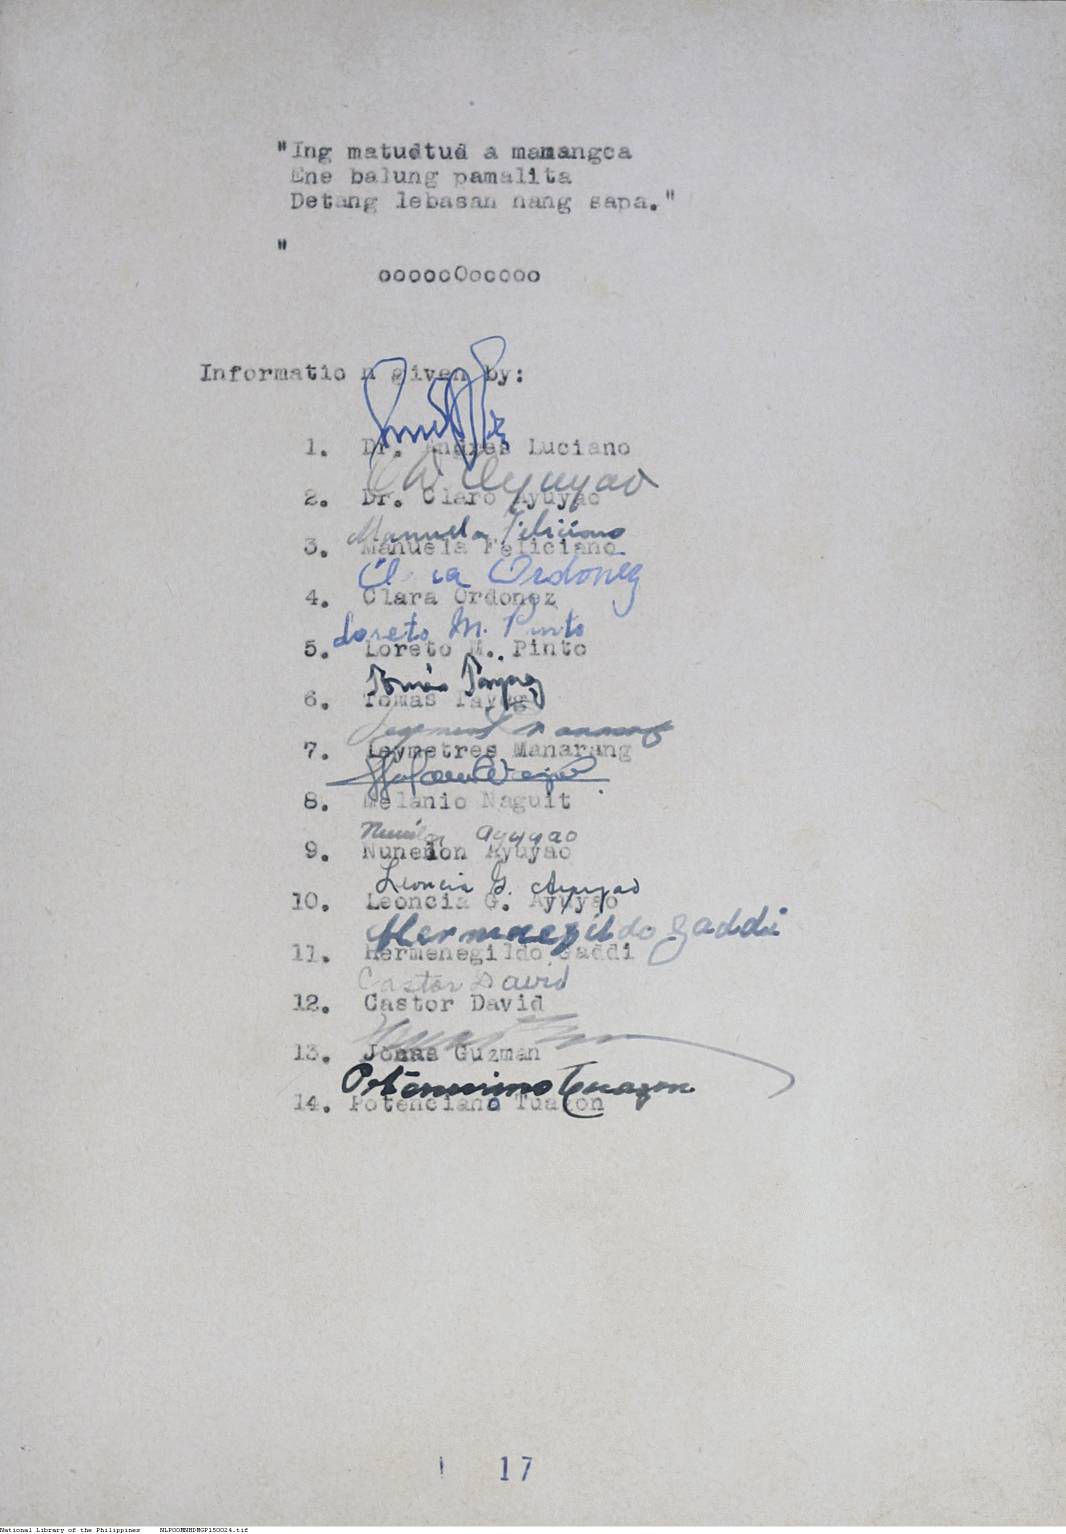 "Ing matudtud a mamangca
Ene balung pamalita
Detang lebasan nang sapa."
"
oooooOooooo
Information given by:
1. Dr. Andres Luciano
Ayuyao
2. Dr. Claro Ayuyao
Manuela Feliciano
3. Manuela Feliciano
Clara Ordonez
4. Clara Ordonez
Loreto M. Pinto
5. Loreto M. Pinto
Tomas
6. Tomas Tayag
7. Leymetres Manarang
8. Melanio Naguit
Ayuyao
9. Nunedon Ayuyao
Leoncia G. Ayuyao
10. Leoncia G. Ayuyao
Hermenegildo Gaddi
11. Hermenegildo Gaddi
Castor David
12. Castor David
13. Jonas Guzman
Potenciano Tuazon
14. Potenciano Tuazon
! 17
National Library of the Philippines NLPOOMNHDMGP150024.tif